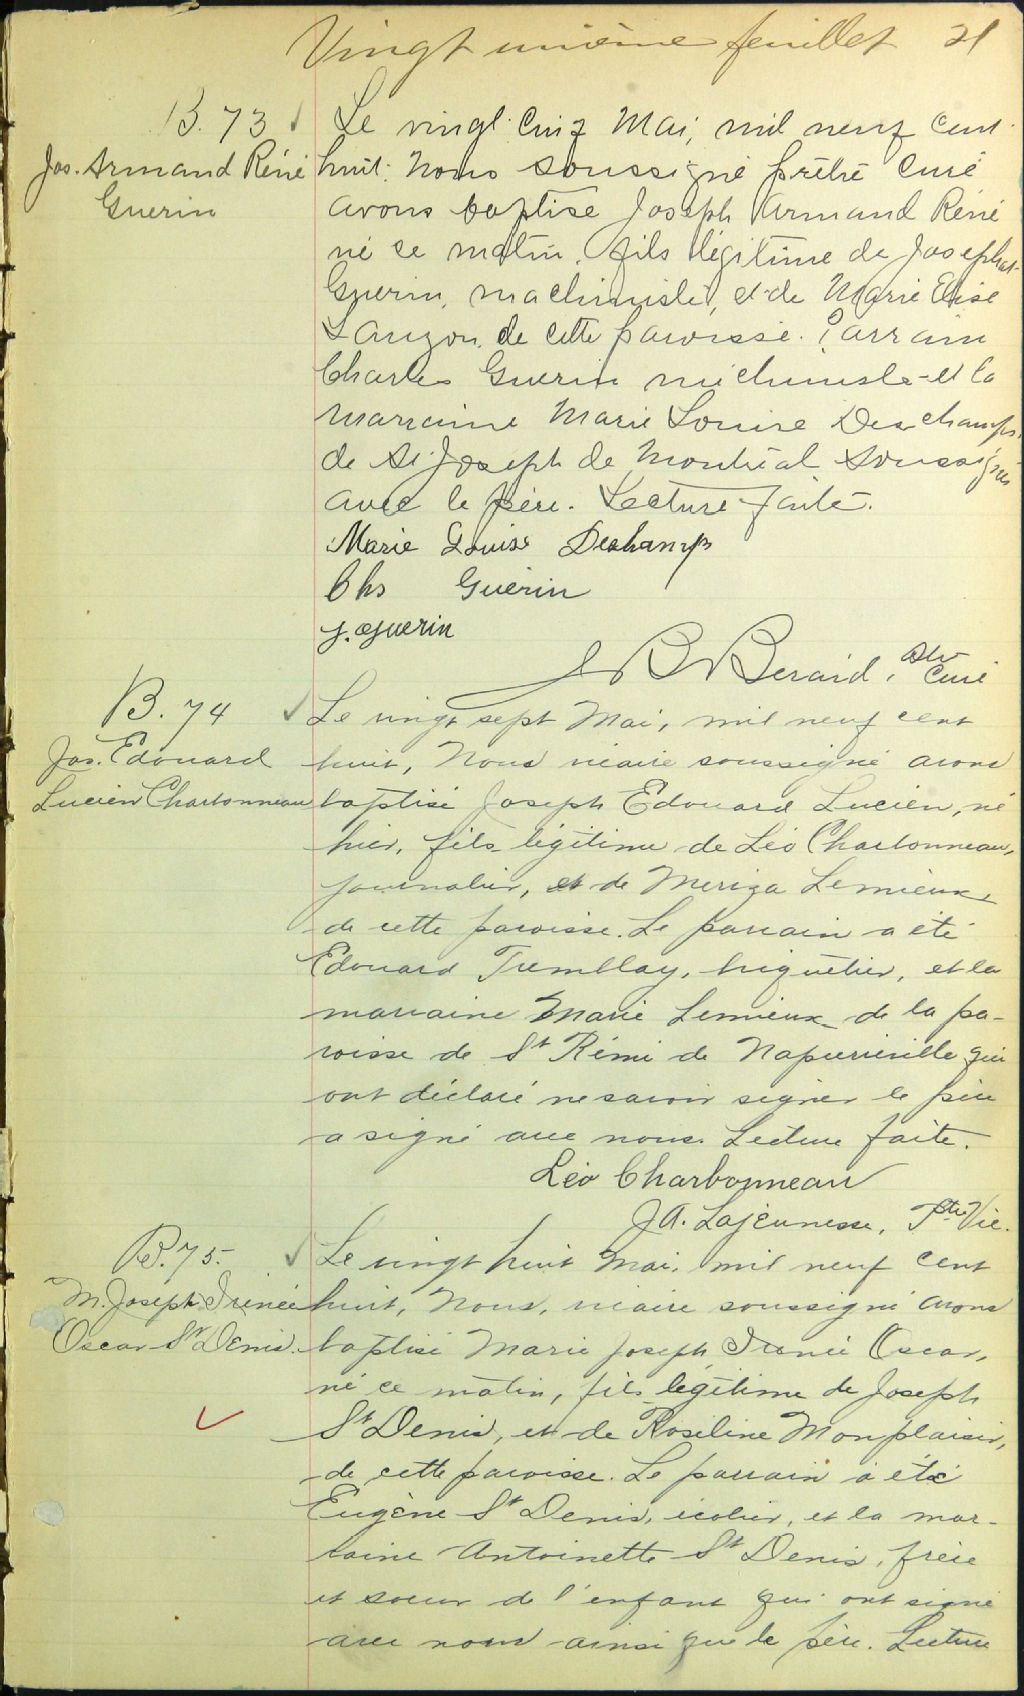 Vingt unième feuillet 21
B. 73
Jos. Armand Réné
Guerin
Le vingt cinq Mai, mil neuf cent
huit: Nous soussigné prêtre curé
avons baptisé Joseph Armand Réné
né ce matin, fils légitime de Josephat
Guerin, machiniste, et de Marie Elise
Lauzon, de cette paroisse. Parrain
Charles Guerin michiniste et la
marraine Marie Louise Deschamps
de St Joseph de Montréal soussignés
avec le père. Lecture faite.
Marie Louise Deshamps
Chs Guérin
J. Guerin
Berard, Ptr Curé
B. 74
Jos. Edouard
Lucien Charbonneau
Le vingt sept Mai, mil neuf cent
huit, Nous vicaire soussigné avons
baptisé Joseph Edouard Lucien, né
hier, fils légitime de Léo Charbonneau,
journalier, et de Meriza Lemieux
de cette paroisse. Le parrain a été
Edouard Tremblay, briquetier, et la
marraine Marie Lemieux de la pa-
roisse de St Rémi de Napierreville qui
ont déclaré ne savoir signer le père
a signé avec nous. Lecture faite.
Léo Charbonneau
J.A. Lajeunesse, Ptre Vic.
B. 75.
M. Joseph Irénée
Oscar St Denis.
Le vingt huit Mai, mil neuf cent
huit, Nous, vicaire soussigné avons
baptisé Marie Joseph Irenée Oscar,
né ce matin, fils légitime de Joseph
St Denis, et de Roseline Monplaisir,
de cette paroisse. Le parrain a été
Eugène St Denis, écolier, et la mar-
raine Antoinette St Denis, frère
et soeur de l'enfant qui ont signé
avec nous ainsi que le père. Lecture